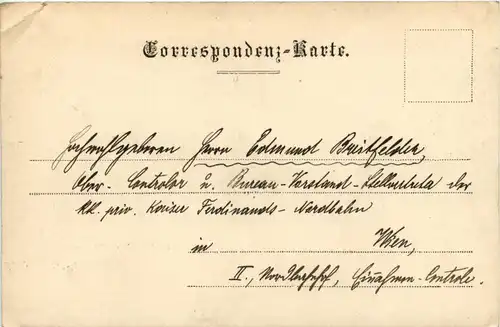 Correspondenz-Karte.
Hochwohlgeboren Herrn Edmund Breitfelder,
Ober-Controlor u. Bureau-Vorstand-Stellvertreter der
k.k. priv. Kaiser Ferdinands-Nordbahn
in Wien,
II., Nordbahnhof, Einnahmen-Controle.